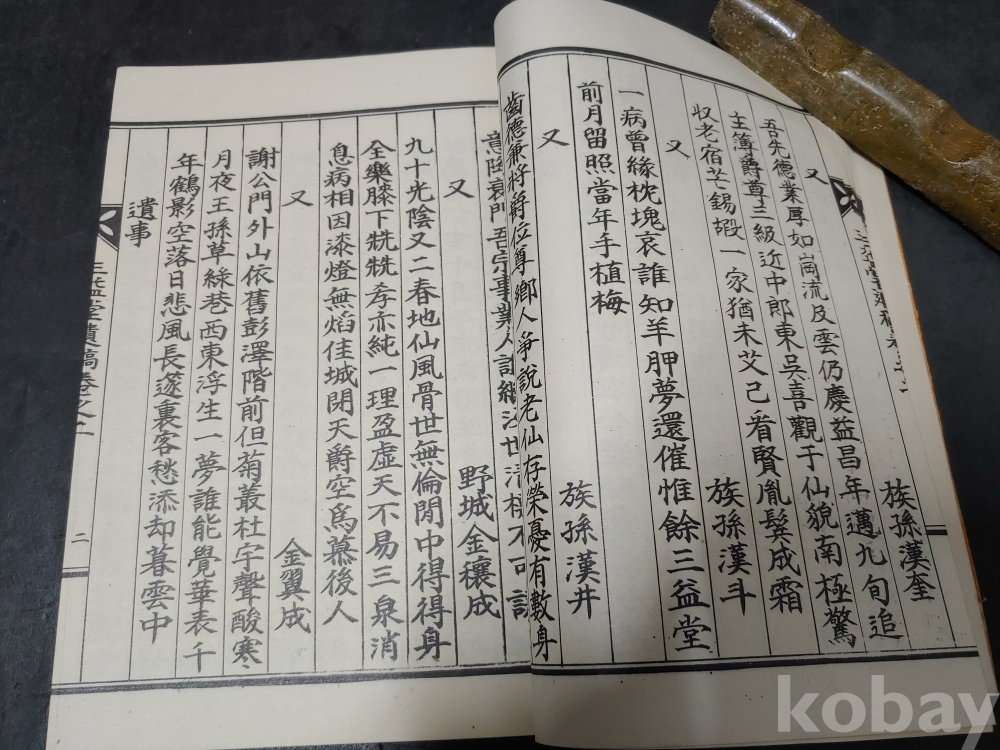 又 族孫漢奎
吾先德業厚如崗流及雲仍慶益昌年邁九旬追
主簿爵尊三級近中郎東吳喜觀于仙貌南極驚
収老宿芒錫嘏一家猶未艾已看賢胤鬂成霜
又 族孫漢斗
一病曾緣枕塊哀誰知羊胛夢還催惟餘三益堂
前月留照當年手植梅
又 族孫漢井
齒德兼將爵位尊鄉人爭說老仙存榮憂有數身
吾宗事業人
又 野城金穰成
九十光陰又二春地仙風骨世無倫閒中得得身
全樂膝下兟兟孝亦純一理盈虛天不易三泉消
息病相因漆燈無焰佳城閉天爵空爲慕後人
又 金翼成
謝公門外山依舊彭澤階前但菊叢杜宇聲酸寒
月夜王孫草綠巷西東浮生一夢誰能覺華表千
年鶴影空落日悲風長篴裏客愁添却暮雲中
遺事
三益堂遺稿卷之二
二
kobay